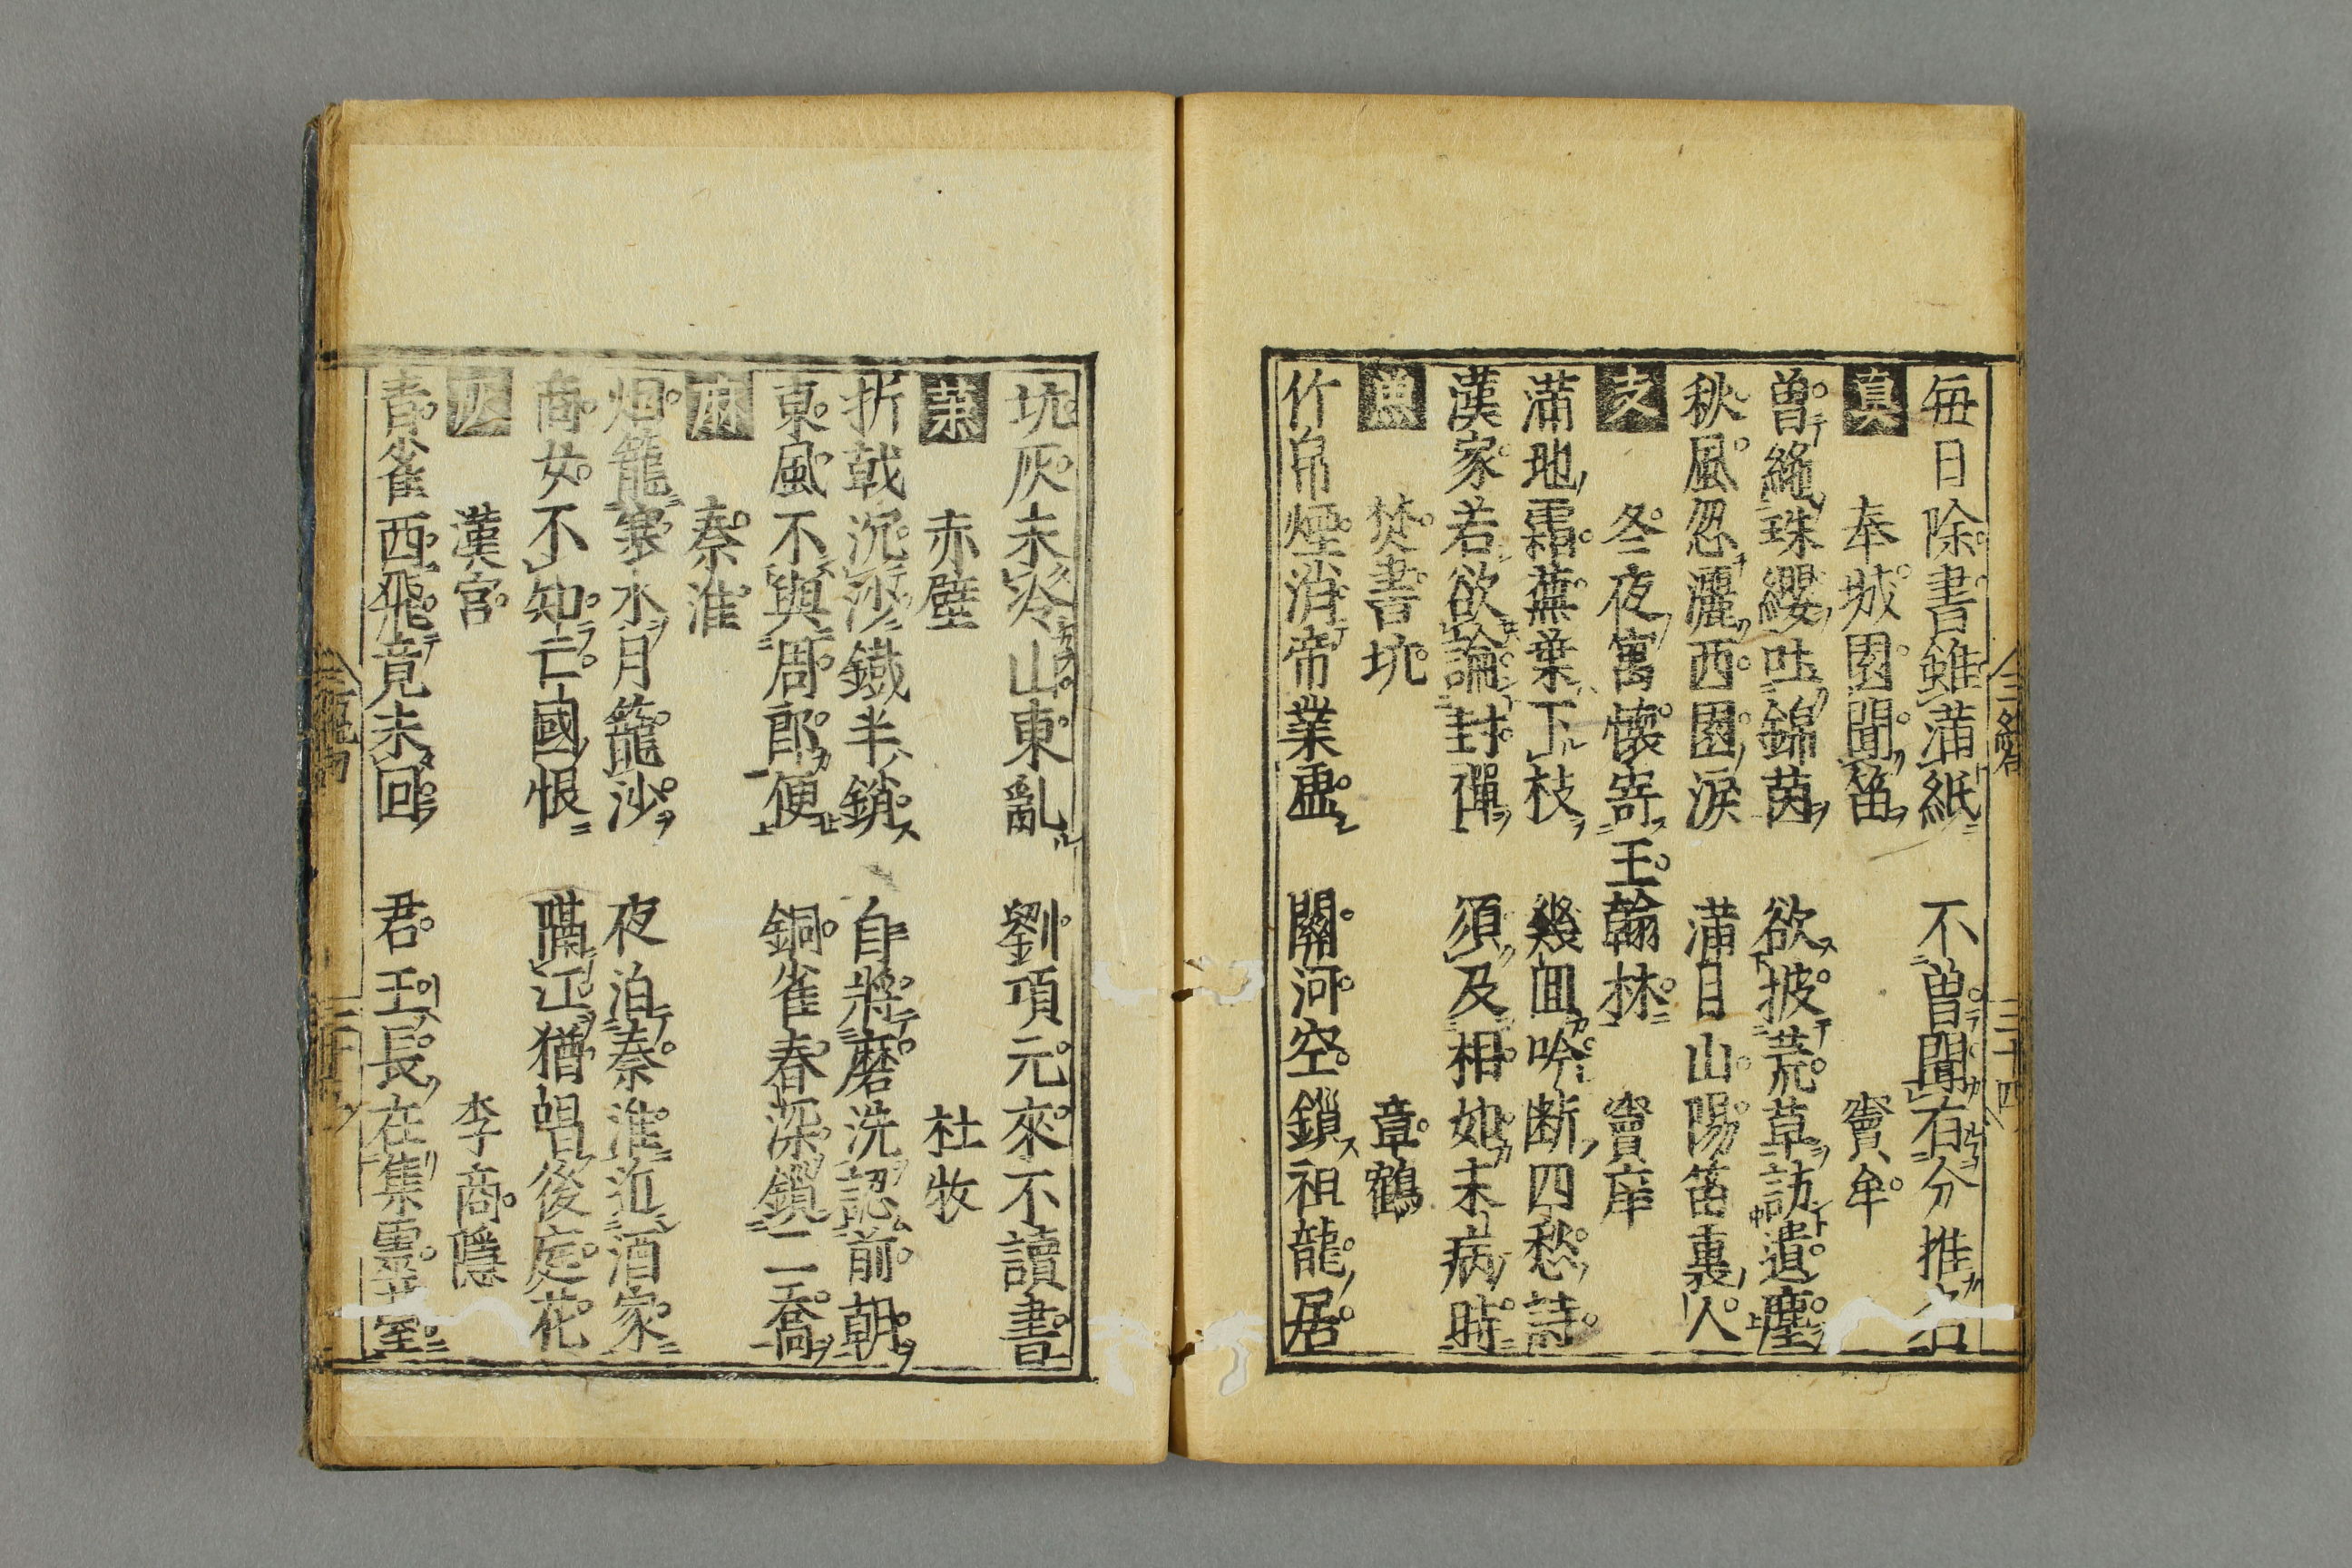 毎日除書雖滿紙　不曽聞有介推名
真　奉城園聞笛　竇牟
曽絶珠纓吐錦茵　欲披荒草訪遺塵
秋風忽灑西園涙　滿目山陽笛裏人
支　冬夜寓懐寄王翰林　竇庠
滿地霜蕪葉下枝　幾囬吟断四愁詩
漢家若欲論封禪　須及相如未病時
魚　焚書坑　章鶴
竹帛煙消帝業虚　關河空鎖祖龍居
三體
三十四
坑灰未冷山東亂　劉項元來不讀書
葉　赤壁　杜牧
折戟沉沙鐵半鎖　自將磨洗認前朝
東風不與周郎便　銅雀春深鎖二喬
麻　秦淮
烟籠寒水月籠沙　夜泊秦淮近酒家
商女不知亡國恨　隔江猶唱後庭花
灰　漢宮　李商隱
青雀西飛竟未回　君王長在集靈臺